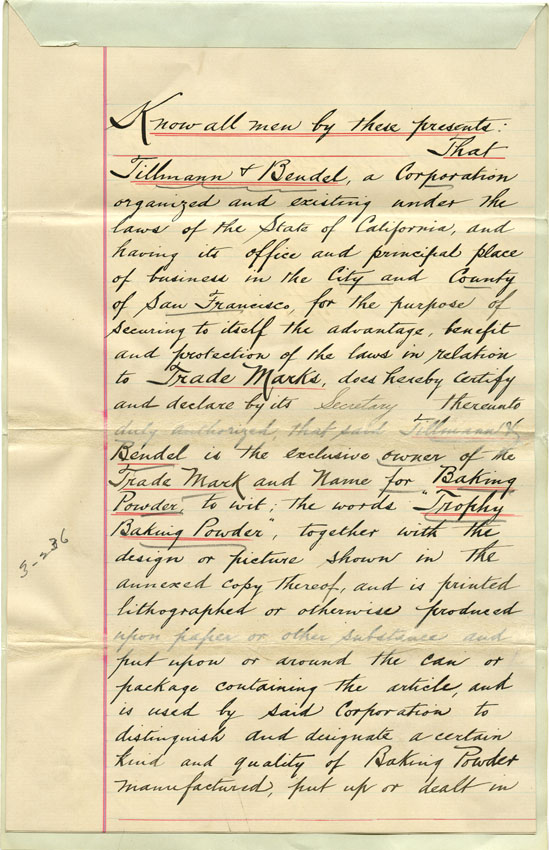 Know all men by these presents:
That
Tillmann & Bendel, a Corporation
organized and existing under the
laws of the State of California, and
having its office and principal place
of business in the City and County
of San Francisco, for the purpose of
securing to itself the advantage, benefit
and protection of the laws in relation
to Trade Marks, does hereby certify
and declare by its Secretary thereunto
duly authorized, that said Tillmann &
Bendel is the exclusive owner of the
Trade Mark and Name for Baking
Powder, to wit; the words "Trophy
Baking Powder", together with the
design or picture shown in the
annexed copy thereof, and is printed
lithographed or otherwise produced
upon paper or other substance and
put upon or around the can or
package containing the article, and
is used by said Corporation to
distinguish and designate a certain
kind and quality of Baking Powder
manufactured, put up or dealt in
3-236